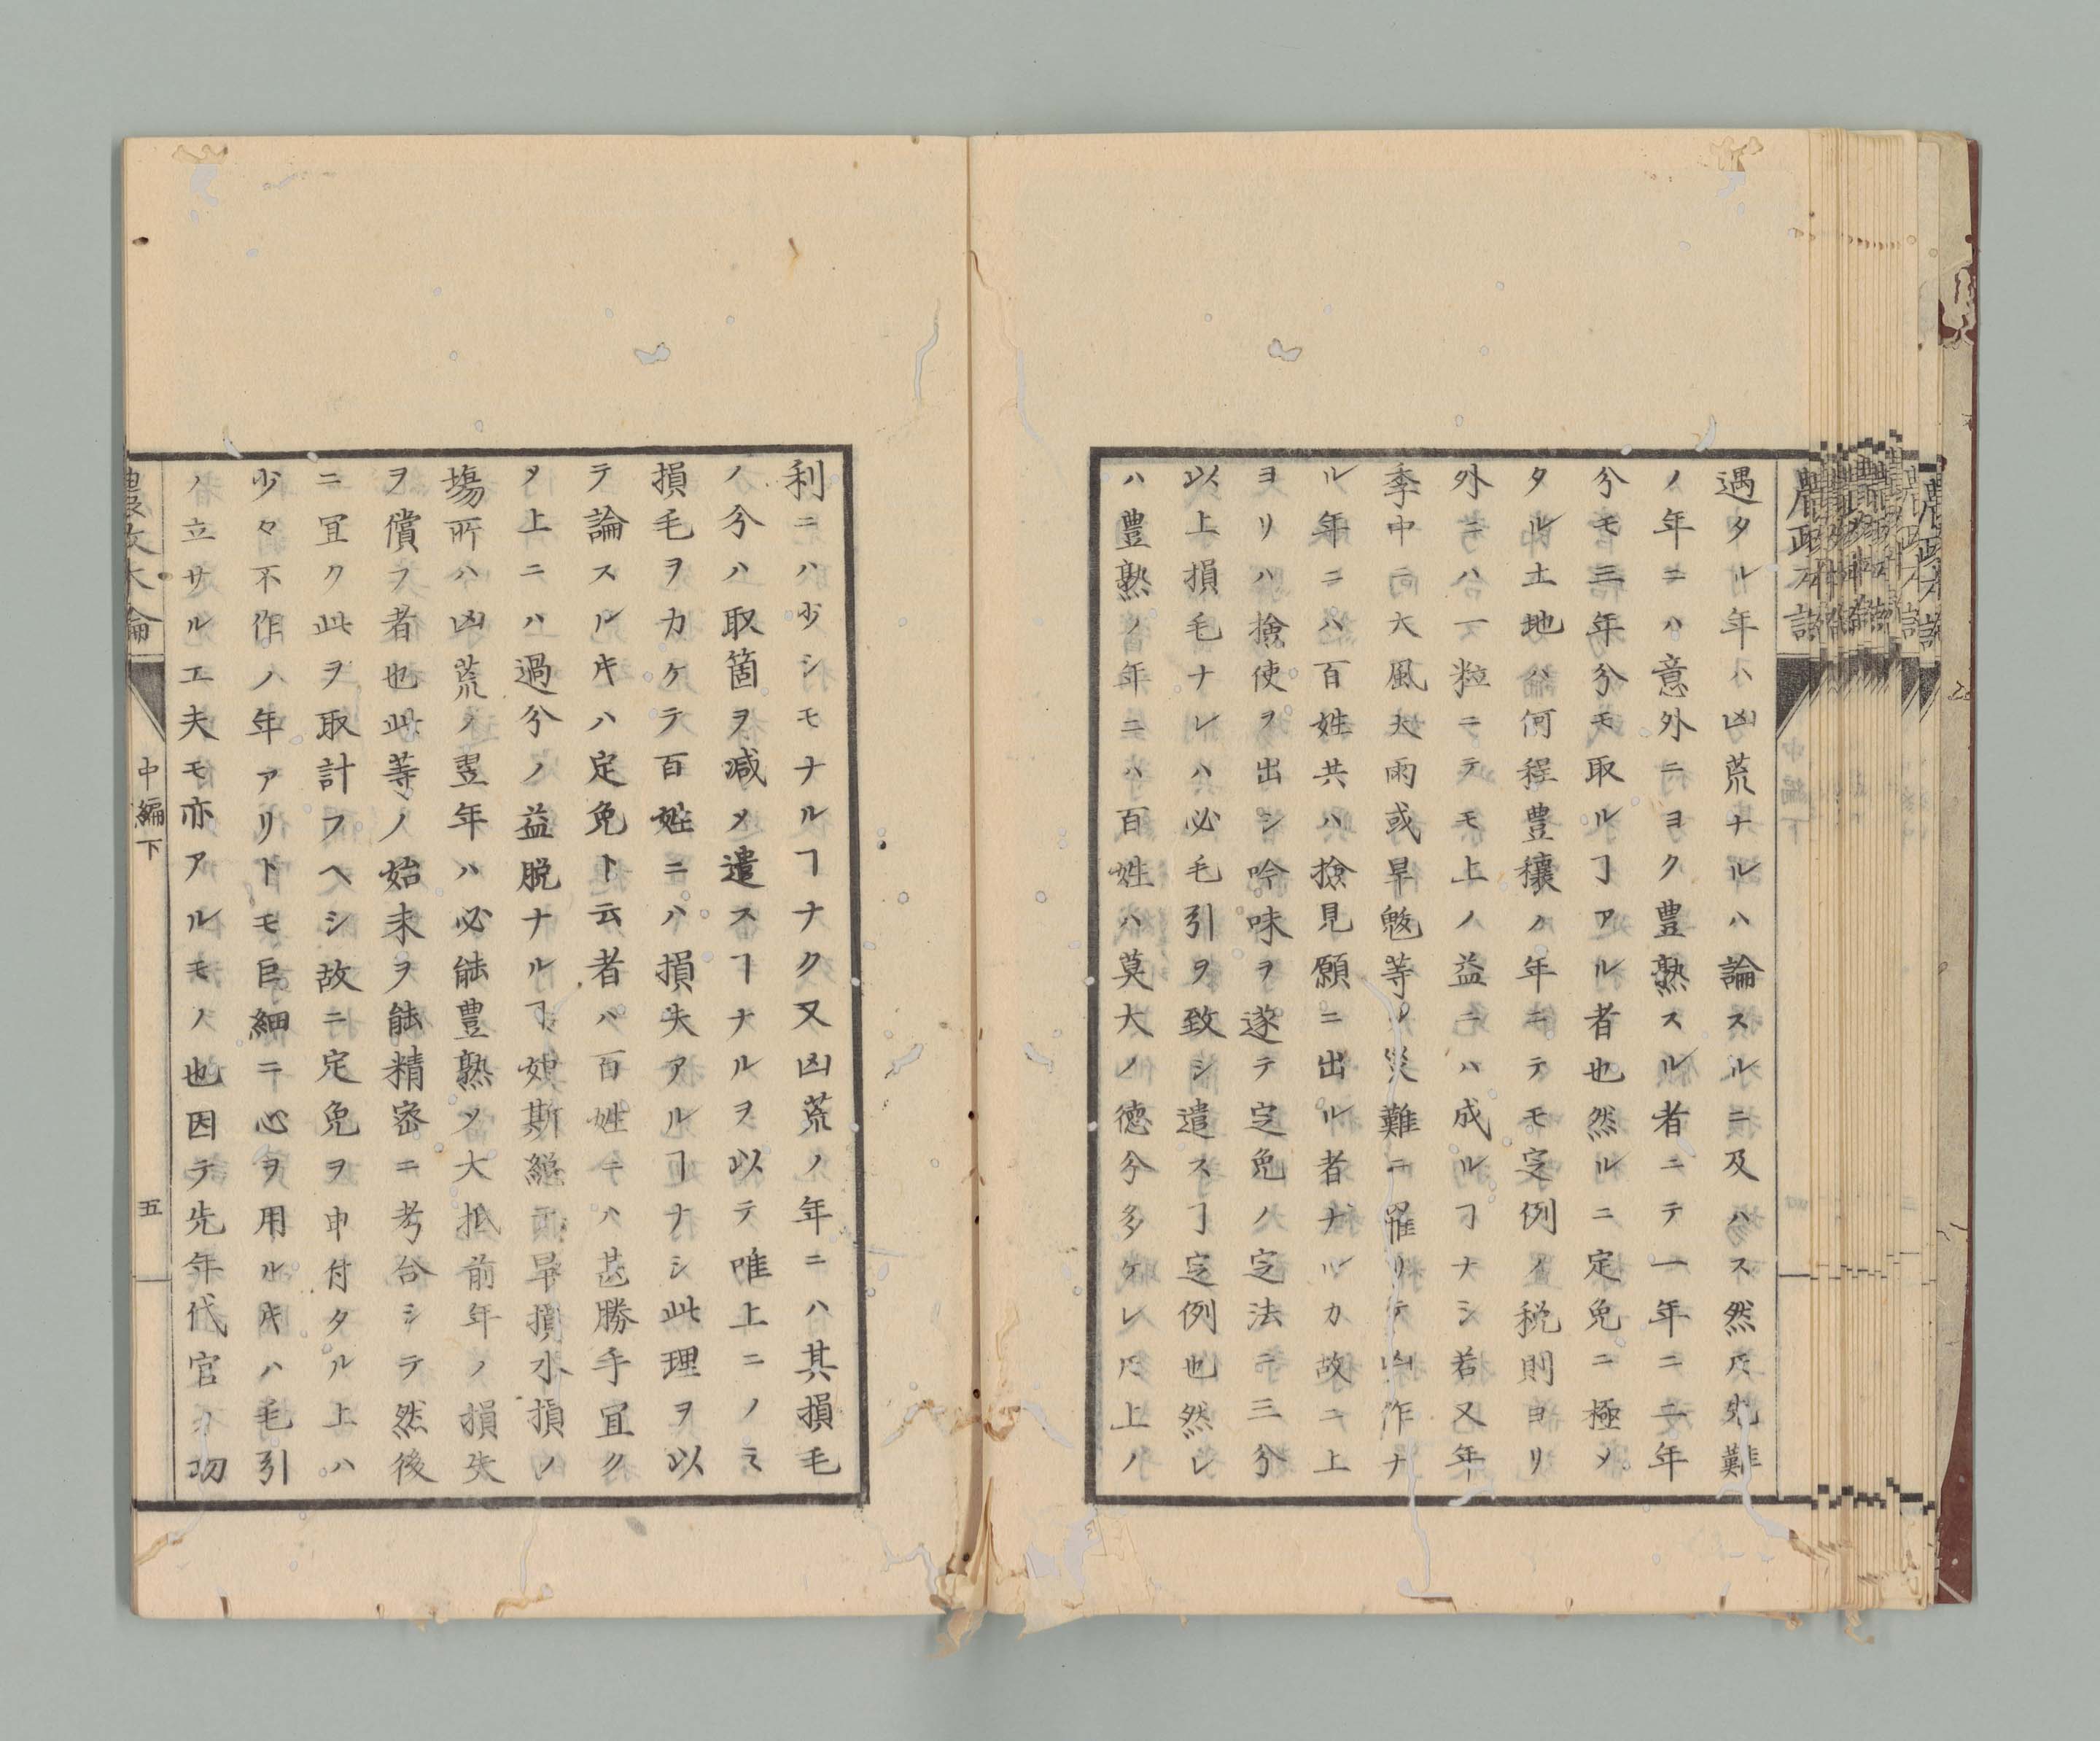 遇タル年ハ凶荒ナルハ論スルニ及ハス然𪜈先難
ノ年ニハ意外ニヨク豊熟スル者ニテ一年ニ二年
分モ三年分モ取ルヿアル者也然ルニ定免ニ極メ
タル土地ハ何程豊穰ノ年ニテモ定例ノ税則ヨリ
外ニハ一粒ニテモ上ノ益ニハ成ルヿナシ若又年
季中ニ大風大雨或旱魃等ノ災難ニ罹リテ凶作ナ
ル年ニハ百姓共ハ撿見願ニ出ル者ナルカ故ニ上
ヨリハ撿使ヲ出シ吟味ヲ遂テ定免ノ定法ニ三分
以上損毛ナレハ必毛引ヲ致シ遣スヿ定例也然レ
ハ豊熟ノ年ニハ百姓ハ莫大ノ徳分多ケレ𪜈上ノ
利ニハ少シモナルヿナク又凶荒ノ年ニハ其損毛
ノ分ハ取箇ヲ減メ遣スヿナルヲ以テ唯上ニノミ
損毛ヲカケテ百姓ニハ損失アルヿナシ此理ヲ以
テ論スルキハ定免ト云者ハ百姓ニハ甚勝手宜ク
メ上ニハ過分ノ益脱ナルヿ如斯縦而旱損水損ノ
塲所ハ凶荒ノ翌年ハ必能豊熟ソ大抵前年ノ損失
ヲ償フ者也此等ノ始末ヲ能精密ニ考合シテ然後
ニ宜ク此ヲ取計フヘシ故ニ定免ヲ申付タル上ハ
少々不作ノ年アリトモ巨細ニ心ヲ用ルキハ毛引
ノ立サルエ夫モ亦アルモノ也因テ先年代官ノ功
農政本論
中編下
五